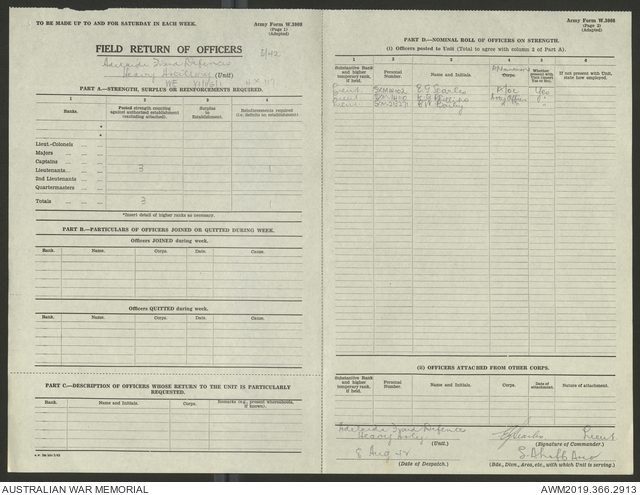 TO BE MADE UP TO AND FOR SATURDAY IN EACH WEEK.
Army Form W.3008
(Page 1)
(Adapted)
FIELD RETURN OF OFFICERS
Adelaide Fixed Defences
Heavy Artillery (Unit)
PART A—STRENGTH, SURPLUS OR REINFORCEMENTS REQUIRED.
1 2 3 4
Ranks. Posted strength counting against authorised establishment (excluding attached). Surplus to Establishment. Reinforcements required (i.e. deficits on establishment)
*
*
Lieut.-Colonels
Majors
Captains
Lieutenants 3 1
2nd Lieutenants
Quartermasters
Totals 3 1
*Insert detail of higher ranks as necessary.
PART B.—PARTICULARS OF OFFICERS JOINED OR QUITTED DURING WEEK.
Officers JOINED during week.
Rank. Name. Corps. Date. Cause.
Officers QUITTED during week.
Rank. Name. Corps. Date. Cause.
PART C.—DESCRIPTION OF OFFICERS WHOSE RETURN TO THE UNIT IS PARTICULARLY
REQUESTED.
Rank. Name and Initials. Corps. Remarks (e.g., present whereabouts, if known).
Army Form W.3008
(Page 2)
(Adapted)
PART D.—NOMINAL ROLL OF OFFICERS ON STRENGTH.
(i) Officers posted to Unit (Total to agree with column 2 of Part A).
1 2 3 4 5 6
Substantive Rank and higher temporary rank, if held. Personal Number. Name and Initials. Corps. Whether present with Unit (insert Yes or No). If not present with Unit, state how employed.
Lieut Yes
Lieut
Lieut
(ii) OFFICERS ATTACHED FROM OTHER CORPS.
Substantive Rank and higher temporary rank, if held. Personal Number. Name and Initials. Corps. Date of attachment. Nature of attachment.
Adelaide Fixed Defences
Heavy Arty Lieut
(Unit.) (Signature of Commander.)
8 Aug 42
(Date of Despatch.) (Bde., Divn., Area, etc., with which Unit is serving.)
AUSTRALIAN WAR MEMORIAL
AWM2019.366.2913